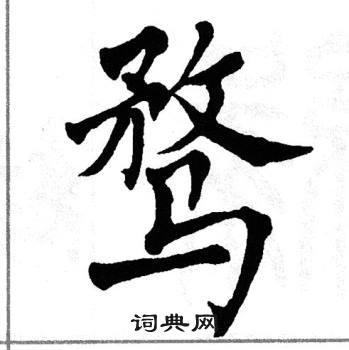 骛
词典网